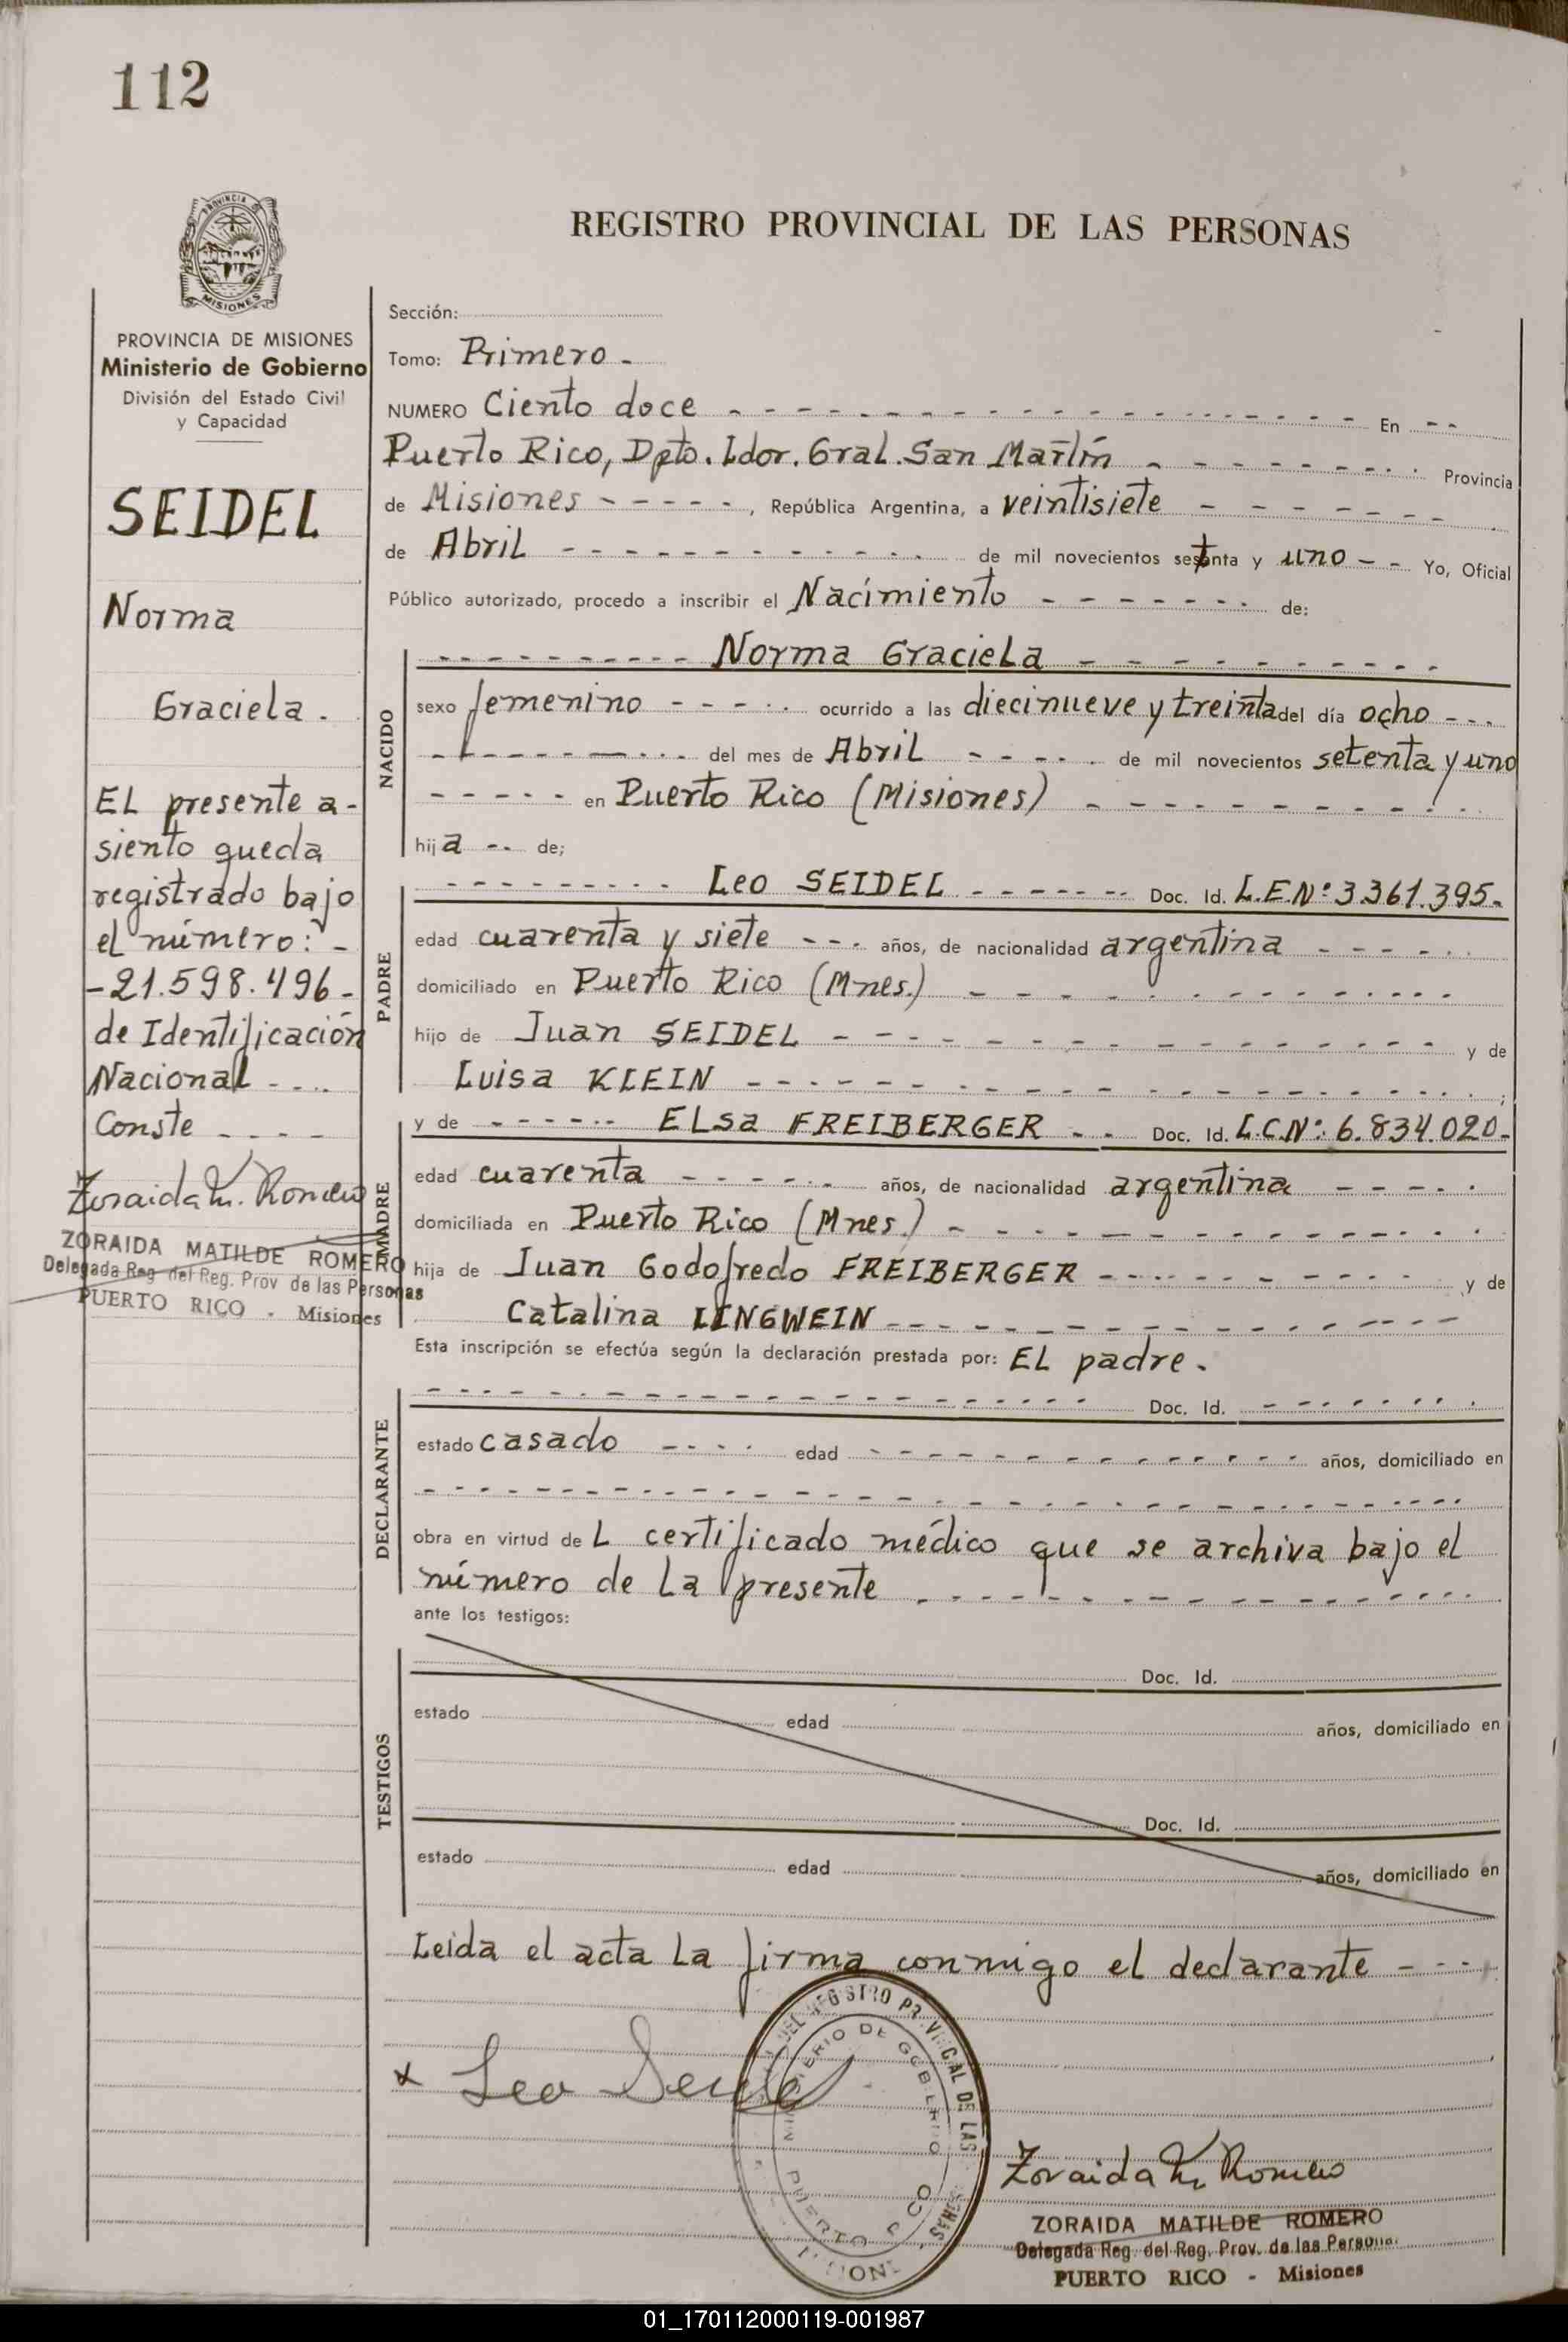 112
PROVINCIA DE MISIONES
REGISTRO PROVINCIAL DE LAS PERSONAS
PROVINCIA DE MISIONES
Ministerio de Gobierno
División del Estado Civil
y Capacidad
SEIDEL
Norma
Graciela.
EL presente a-
siento queda
registrado bajo
el número: -
-21.598.496-
de Identificación
Nacional - - - -
Conste - - - -
Zoraida M. Romero
ZORAIDA MATILDE ROMERO
Delegada Reg del Reg. Prov de las Personas
PUERTO RICO - Misiones
Sección:
Tomo: Primero -
NUMERO Ciento doce - - - En - -
Puerto Rico, Dpto. Ldor. Gral. San Martín - - - Provincia
de Misiones - - - - -, República Argentina, a veintisiete - - -
de Abril - - - de mil novecientos setenta y uno - - Yo, Oficial
Público autorizado, procedo a inscribir el Nacimiento - - - de:
NACIDO
- - - Norma Graciela - - -
sexo femenino - - - ocurrido a las diecinueve y treinta del día ocho - - -
- - - del mes de Abril - - - de mil novecientos setenta y uno
- - - en Puerto Rico (Misiones) - - -
hija - - de;
PADRE
- - - Leo SEIDEL - - - Doc. Id. L.E.Nº 3.361.395-
edad cuarenta y siete - - - años, de nacionalidad argentina - - -
domiciliado en Puerto Rico (Mnes.) - - -
hijo de Juan SEIDEL - - - y de
Luisa KLEIN - - - ;
MADRE
y de - - - ELsa FREIBERGER - - Doc. Id. L.C.Nº: 6.834.020-
edad cuarenta - - - años, de nacionalidad argentina - - -
domiciliada en Puerto Rico (Mnes.) - - -
hija de Juan Godofredo FREIBERGER - - - y de
Catalina LINGWEIN - - -
Esta inscripción se efectúa según la declaración prestada por: EL padre.
DECLARANTE
- - - Doc. Id. - - -
estado casado - - - edad - - - años, domiciliado en
- - -
obra en virtud de L certificado médico que se archiva bajo el
número de La presente - - -
ante los testigos:
TESTIGOS
Doc. Id.
estado edad años, domiciliado en
Doc. Id.
estado edad años, domiciliado en
Leida el acta La firma conmigo el declarante - - -
x Leo Seidel
DEL REGISTRO PROVINCIAL DE LAS
MINISTERIO DE GOBIERNO
PUERTO RICO
Zoraida M. Romero
ZORAIDA MATILDE ROMERO
Delegada Reg. del Reg. Prov. de las Persona
PUERTO RICO - Misiones
01_170112000119-001987